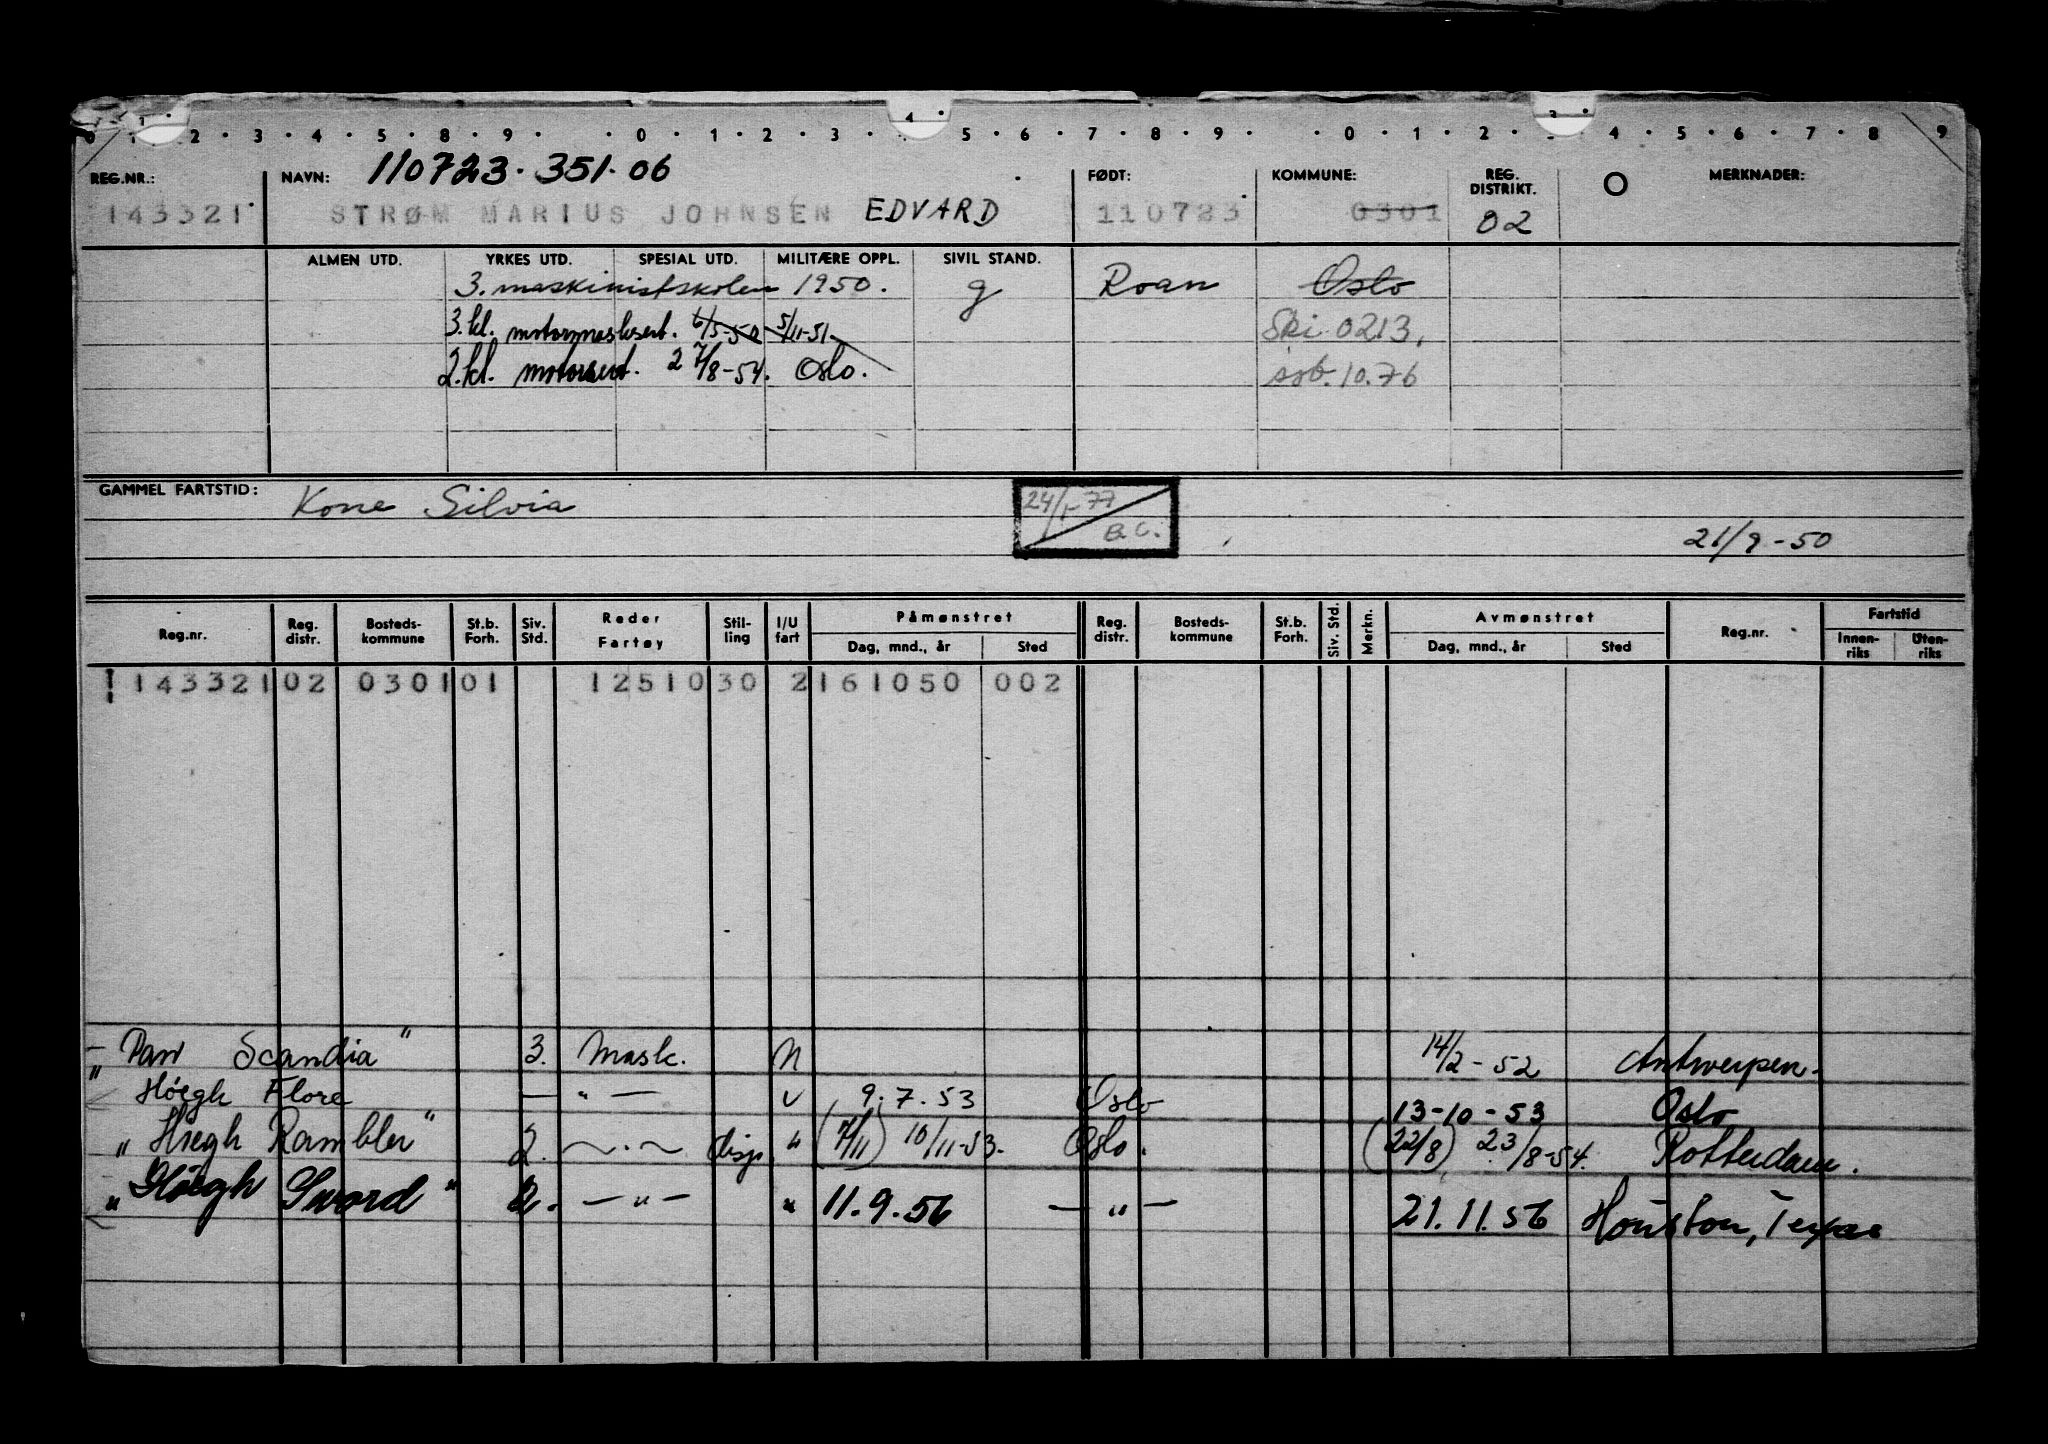 0 1 2 3 4 5 8 9 0 1 2 3 4 5 6 7 8 9 0 1 2 3 4 5 6 7 8 9
REG.NR.: NAVN: 110723.351.06 FØDT: KOMMUNE: REG. DISTRIKT. O MERKNADER:
143321 STRØM MARIUS JOHNSEN EDVARD 110723 0301 02
ALMEN UTD. YRKES UTD. SPESIAL UTD. MILITÆRE OPPL. SIVIL STAND.
3. maskinistskolen 1950. g Roan Oslo
3.kl. 6/5-50 5/11-51 Ski 0213,
2.kl. motorsert. 2 7/8-54. Oslo. 10.76
GAMMEL FARTSTID: Kone Silvia 24/1-77
B.C. 21/9-50
Reg.nr. Reg. distr. Bosteds-kommune St.b. Forh. Siv. Std. Reder Fartøy Stil-ling I/U fart Påmønstret Dag, mnd., år Sted Reg. distr. Bosteds-kommune St.b. Forh. Siv. Std. Merkn. Avmønstret Dag, mnd., år Sted Reg.nr. Fartstid Innen-riks Uten-riks
143321 02 0301 01 12510 30 2 161050 002
" Pan Scandia " 3. Mask. 14/2-52 Antwerpen.
Höegh Flore — " — 9.7.53 Oslo 13-10-53 Oslo
" Höegh Rambler " 2. disp. " (7/11) 10/11-53. Oslo. (22/8) 23/8-54. Rotterdam.
" Höegh Sword " 2. — " — " 11.9.56 — " — 21.11.56 Houston, Texas